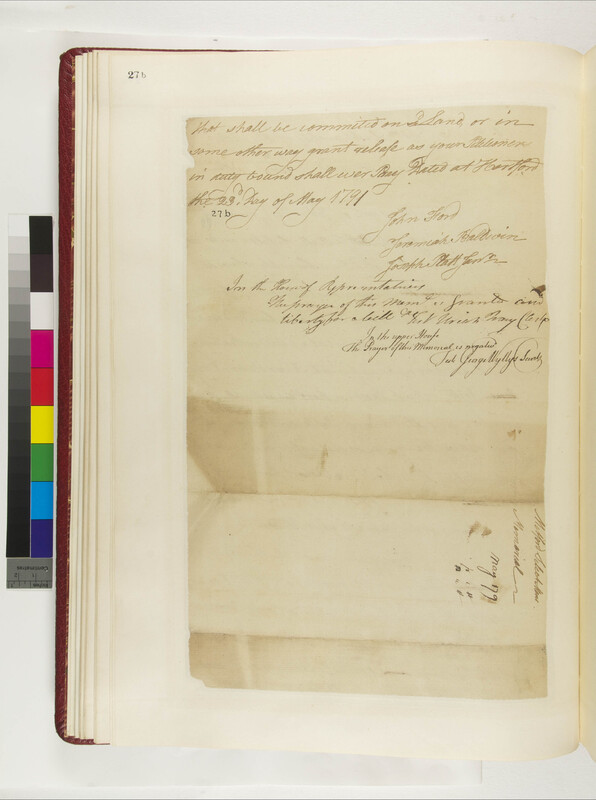 27b
that shall be committed on sd Land, or in
some other way grant releafe as your Petitioners
in duty bound shall ever Pray Dated at Hartford
the 23d Day of May 1791
27b
John Ford
Jeremiah Baldwin
Joseph Platt Junr
In the House of Representatives
The prayer of this Meml is granted and
liberty for a bill &c Test Uriah Tracy Clerk
In the upper House
The Prayer of this Memorial is negatived
Test George Wyllys Secrety
Milford
Memorial
May 1791